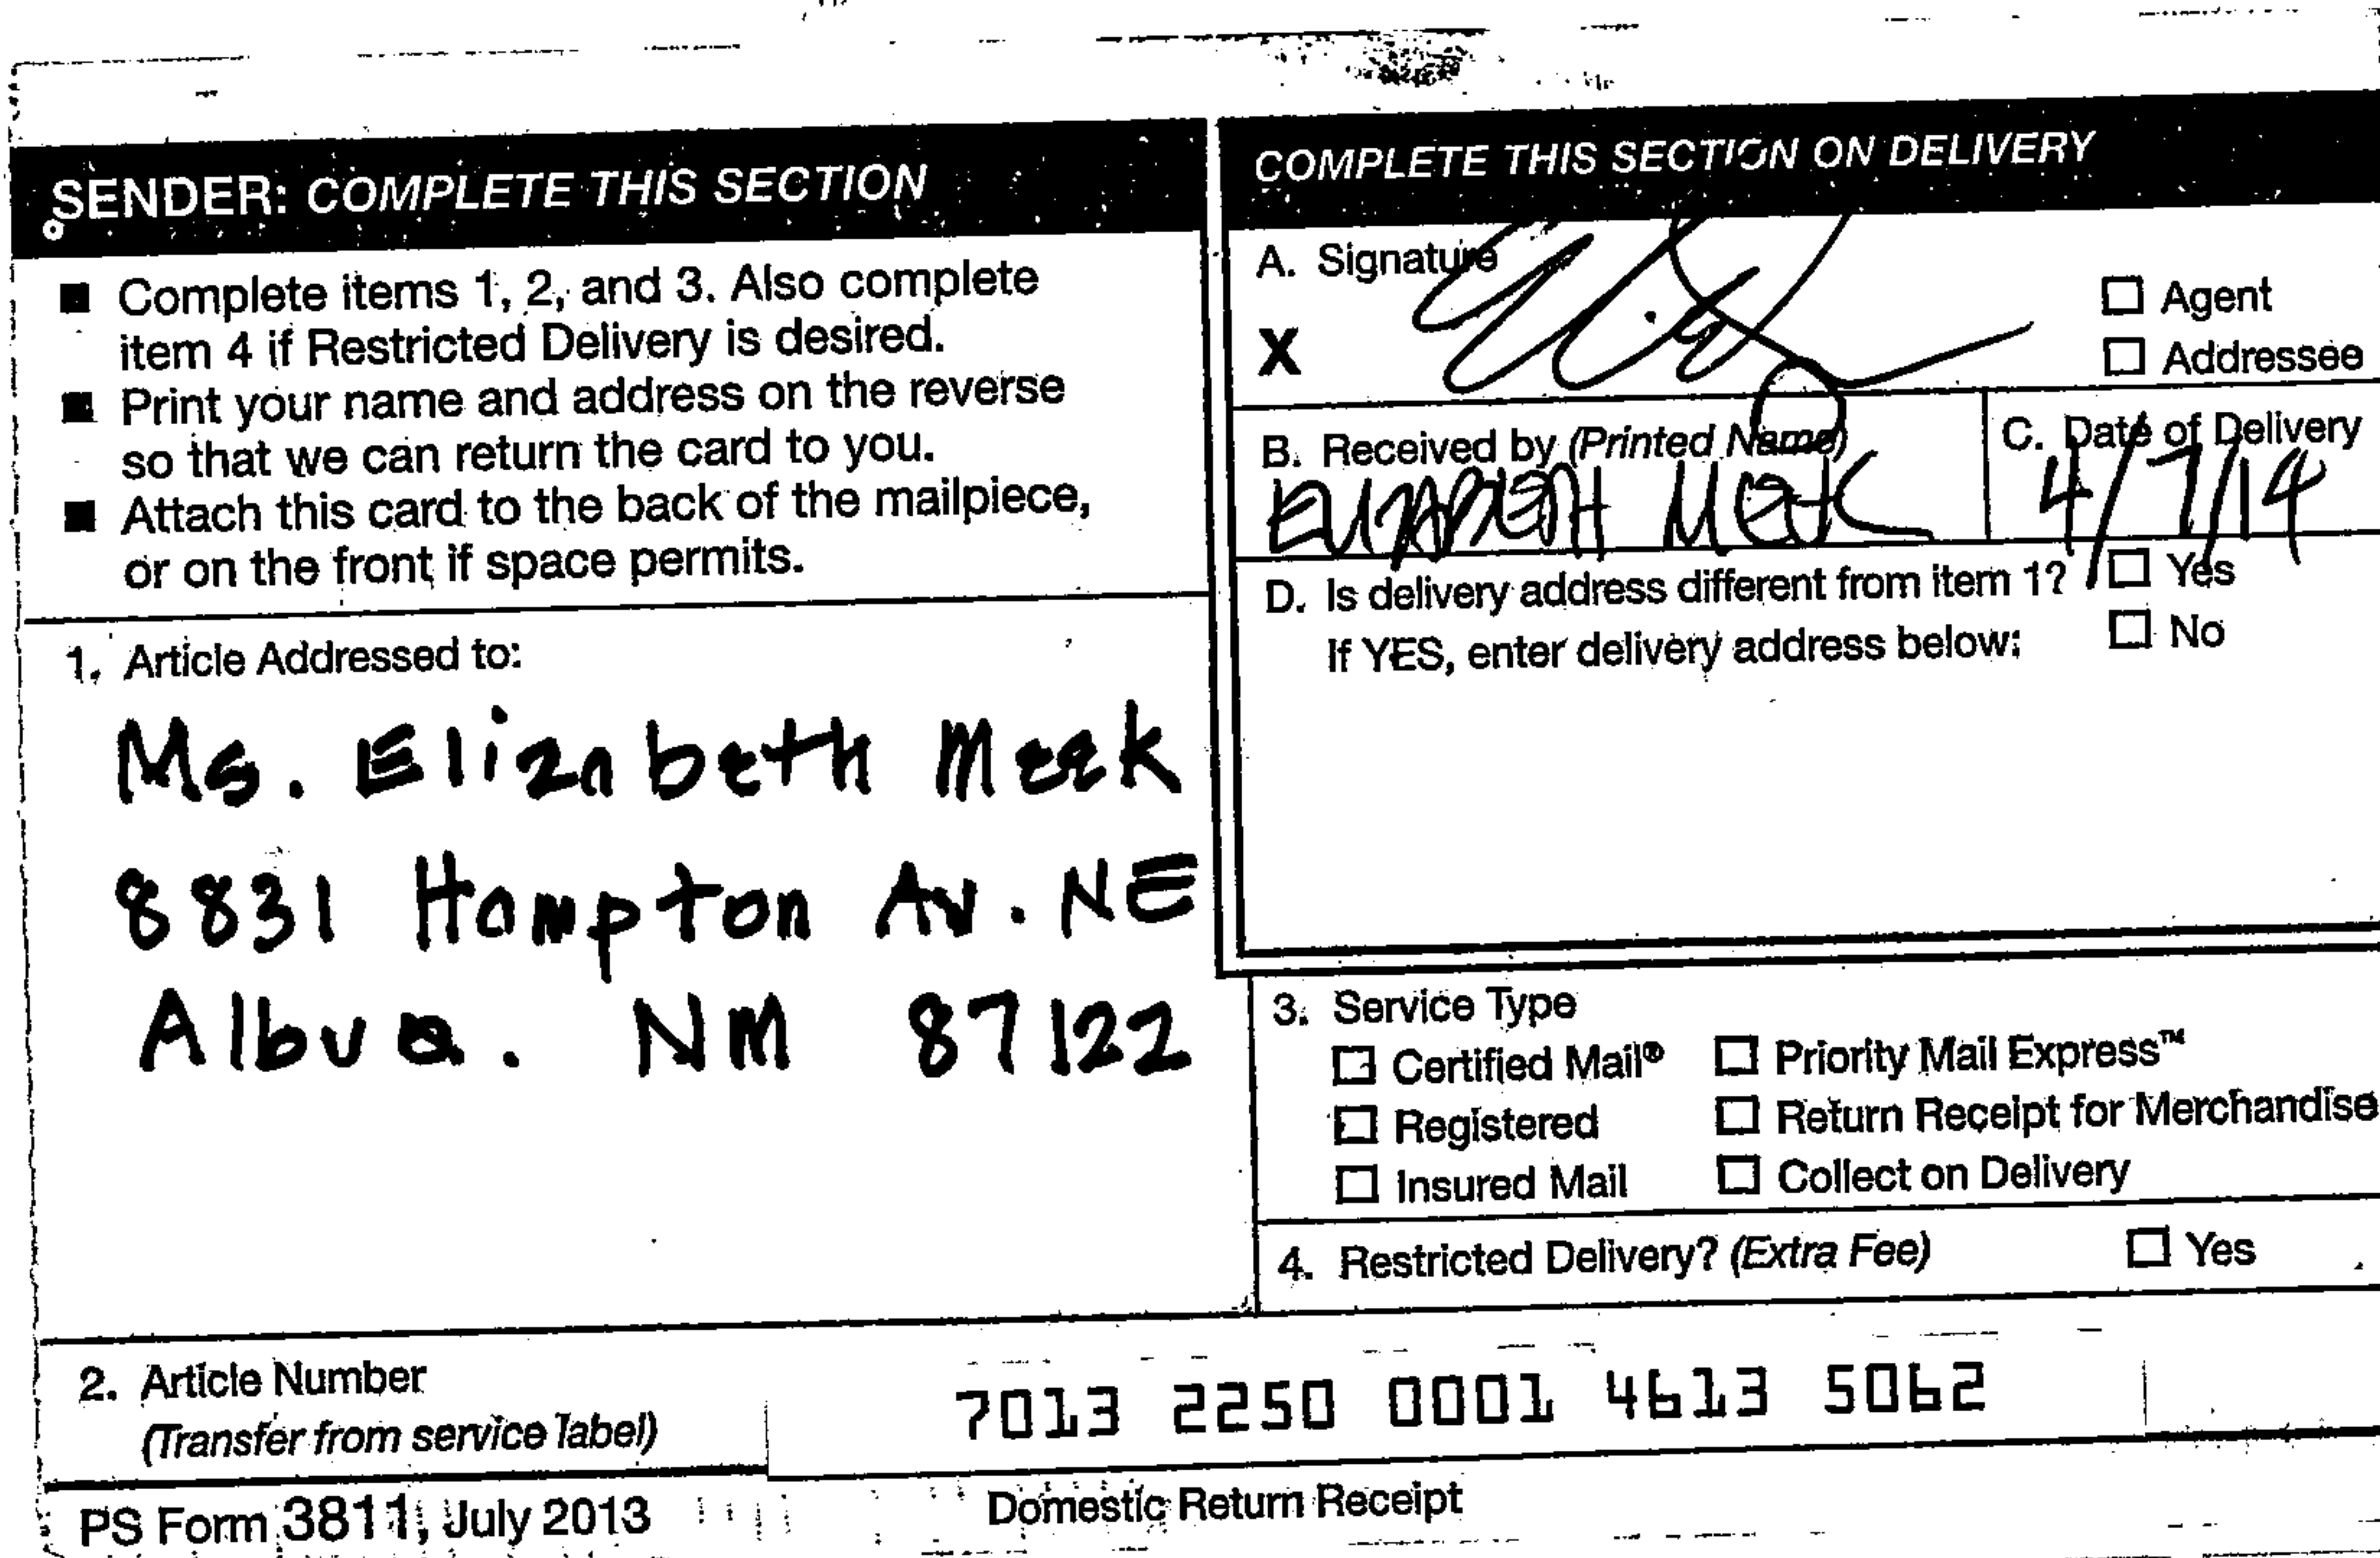 SENDER: COMPLETE THIS SECTION
■ Complete items 1, 2, and 3. Also complete
item 4 if Restricted Delivery is desired.
■ Print your name and address on the reverse
so that we can return the card to you.
■ Attach this card to the back of the mailpiece,
or on the front if space permits.
1. Article Addressed to:
Ms. Elizabeth Meek
8831 Hampton Av. NE
Albuq. NM 87122
COMPLETE THIS SECTION ON DELIVERY
A. Signature
X
☐ Agent
☐ Addressee
B. Received by (Printed Name)
ELIZABETH MEEK
C. Date of Delivery
4/7/14
D. Is delivery address different from item 1? ☐ Yes
If YES, enter delivery address below: ☐ No
3. Service Type
☐ Certified Mail® ☐ Priority Mail Express™
☐ Registered ☐ Return Receipt for Merchandise
☐ Insured Mail ☐ Collect on Delivery
4. Restricted Delivery? (Extra Fee) ☐ Yes
2. Article Number
(Transfer from service label)
7013 2250 0001 4613 5062
PS Form 3811, July 2013
Domestic Return Receipt